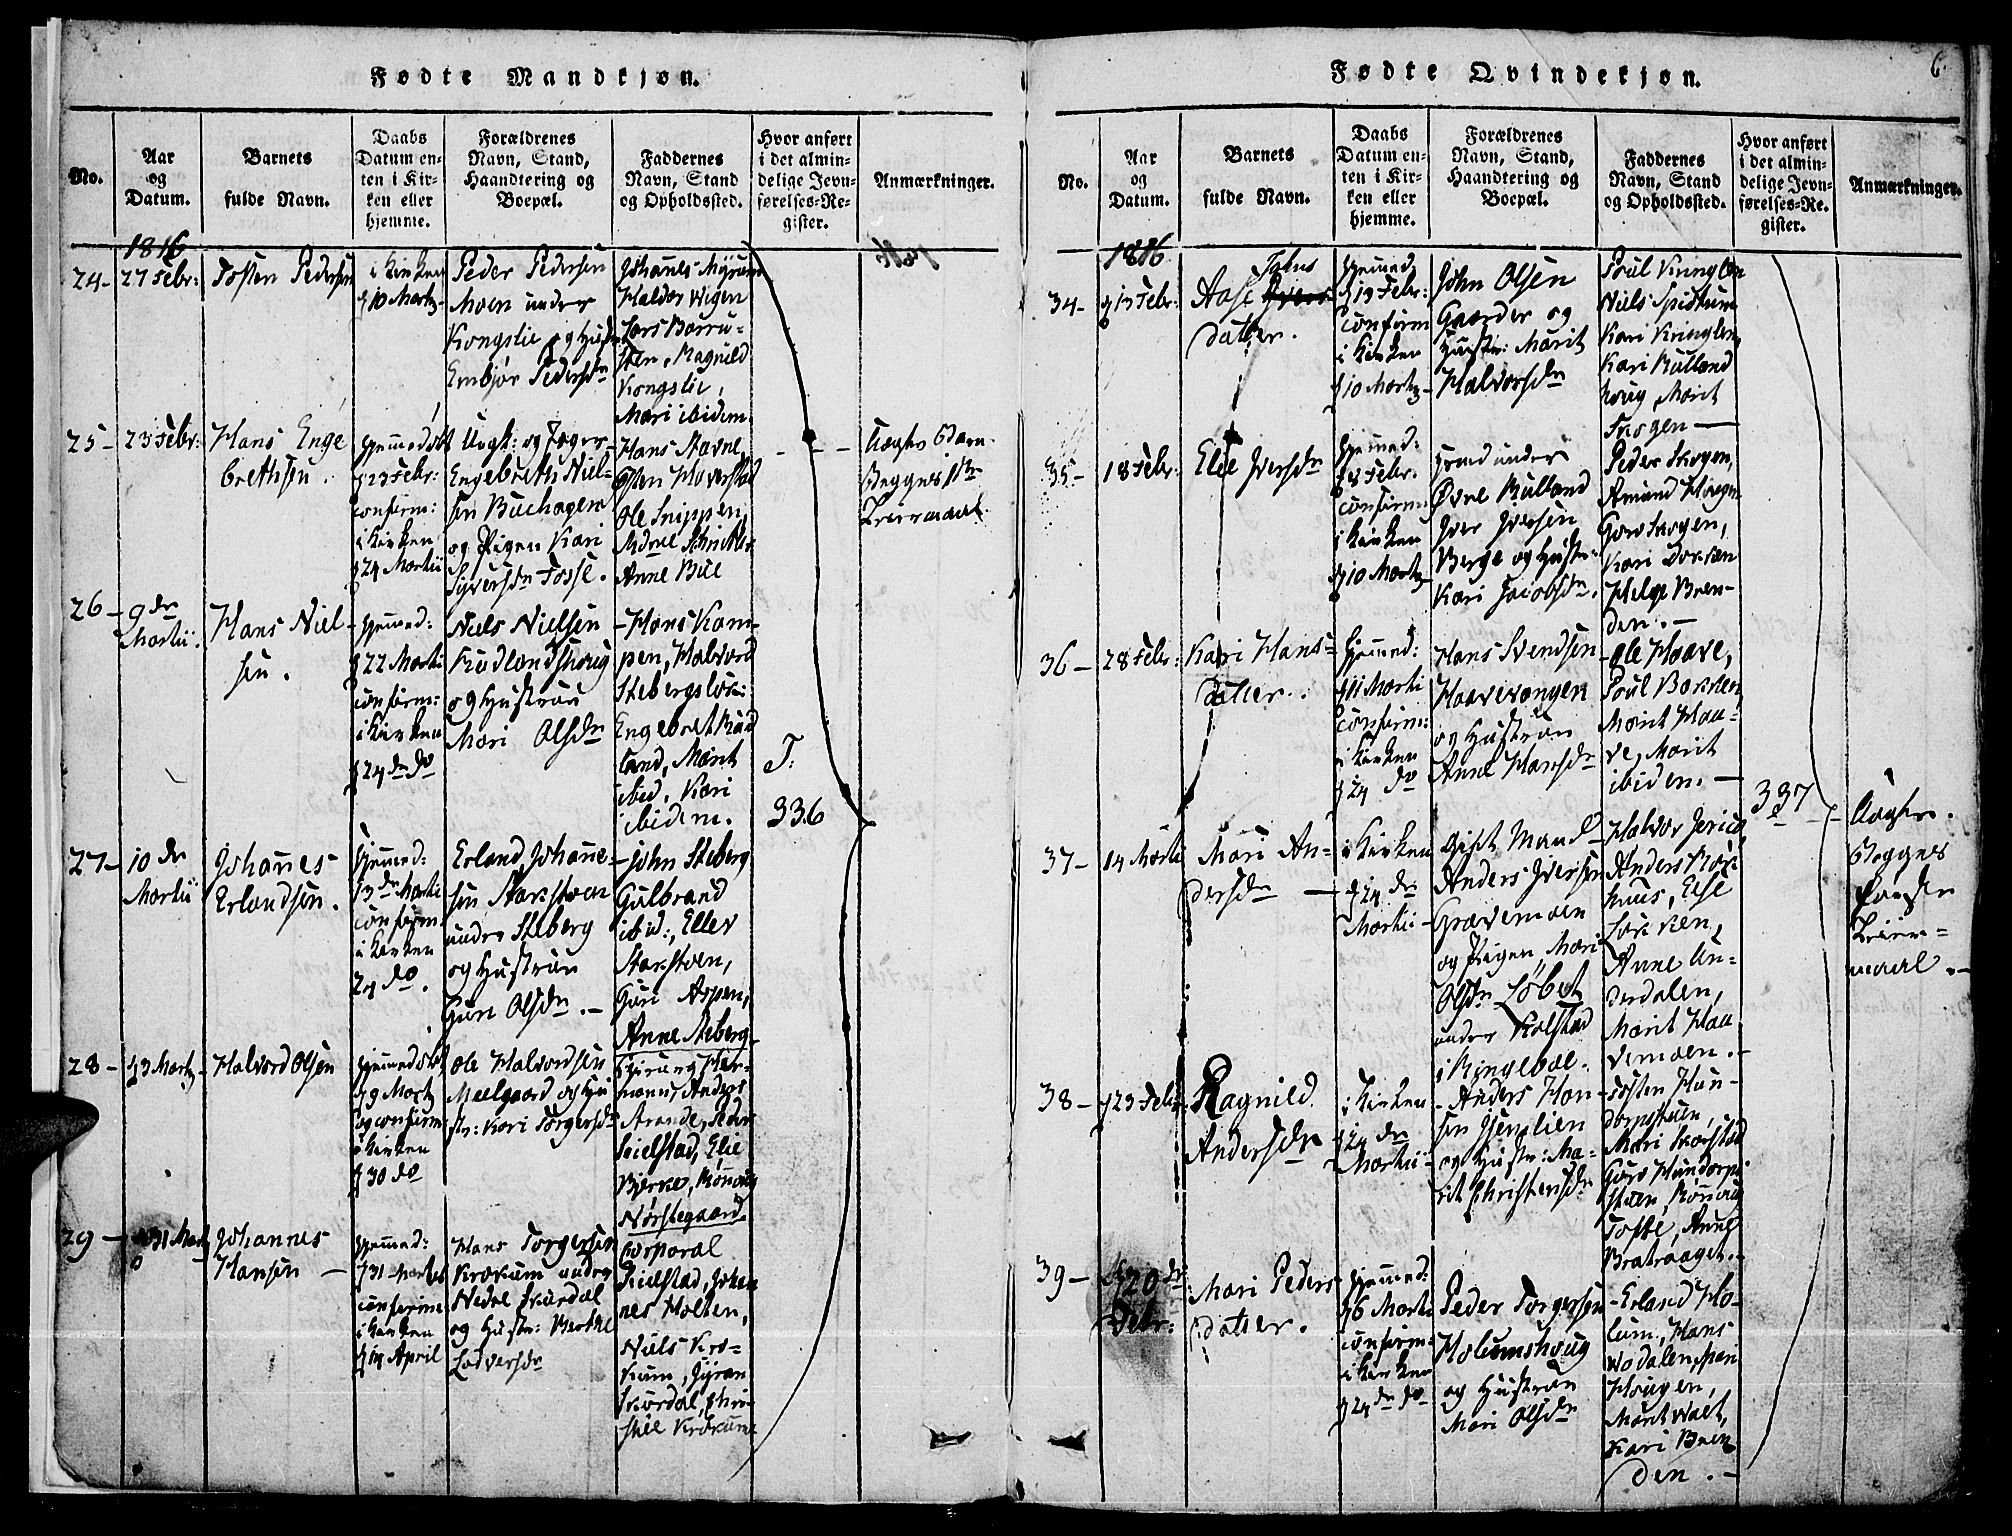 Fødte Mandkjøn.
No.
Aar
og
Datum.
Barnets
fulde Navn.
Daabs
Datum en-
ten i Kir-
ken eller
hjemme.
Forældrenes
Navn, Stand,
Haandtering og
Boepæl.
Faddernes
Navn, Stand
og Opholdssted.
Hvor anført
i det almin-
delige Jevn-
førelses-Re-
gister.
Anmærkninger.
1816
24-
27 Febr:
Tosten Pedersen
i Kirken
d 10 Martz-
Peder Pedersen
Moen under
Kongslie og Hustr
Embjør Pedersdr
Johanes Myrum
Haldor Wigen
Lars Borru-
sten, Magnild
Kongslie,
Mari ibidem.
25-
23 Febr:
Hans Enge
brethsen.
hjemmedøbt
d 23 Febr:
confirm:
i Kirken
d 24 Martii
Ungk: og Jæger
Engebreth Niel-
sen Buehagen
og Pigen Kari
Syversdr Fosse.
Hans Stavne,
Østen Haverstad
Ole Snippen,
Anne Bue
Uægte Barn.
Begges 1ste
Leiermaal.
26-
9 dr
Martii.
Hans Niel-
sen.
hjemmed:
d 22 Marti
confirm:
i Kirken
d 24 dr do
Niels Nielsen
Rudlandshoug
og Hustrue
Mari Olsdr
-Hans Kam-
pen, Halvord
Stebergsløk:
Engebret Rud
land, Marit
ibid, Kari
ibidem.
T.
336
27-
10 dr
Martii
Johanes
Erlandsen.
hjemmed:
13 dr Marti
confirm.
i Kirken
24 do.
Erland Johanne-
sen Starstoen
under Steberg
og Hustrue
Guri Olsdr.-
-John Steberg
Gulbrand
ibid:, Eller
Starstoen,
Guri Aspen,
Anne Steberg
28-
13 Martz-
Halvord Olsen
hjemmedøbt
d 9 Martz
og confirm
i Kirken
d 30 do
Ole Halvordsen
Melgaard og Hu
str: Kari Torgersdr
Kielstad, Elie
Bjerke, Rønnaug
Nørstegaard.
29-
31 Mart
Johannes
Hansen -
hjemmed:
d 31 Martii
confirm
i Kirken
d 14 April
Hans Torgersen
Krokum under
Nedre Skurdal
og Hustr: Berthe
Lodversdr
Corporal
Kielstad, Johan
nes Holten,
Niels Kro-
kum, Jøran
Skurdal, Chri-
stie Krokum
Fødte Qvindekjøn.
6.
No.
Aar
og
Datum.
Barnets
fulde Navn.
Daabs
Datum en-
ten i Kir-
ken eller
hjemme.
Forældrenes
Navn, Stand,
Haandtering og
Boepæl.
Faddernes
Navn, Stand
og Opholdssted.
Hvor anført
i det almin-
delige Jevn-
førelses-Re-
gister.
Anmærkninger.
1816
34-
d 13 Febr:
Johns
Aase
datter.
hjemmed
d 13 Febr:
confirm
i Kirken
d 10 Martz-
John Olsen
Gaarder og
Hustr: Marit
Halvorsdr
Poul Kringlen
Niels Spidtum
Kari Kringlen,
Kari Rulland
houg, Marit
Skogen -
35-
18 Febr:
Elie Iversdr
hjemmed:
18 Febr.
confirm
i Kirken
d 10 Martz-
under
Øvre Rulland
Iver Iversen
Berge og Hustr:
Kari Jacobsdr.
Peder Skogen,
Amund Hougen
Goro Skogen,
Kari Dorken
Helge Bren-
den.-
36-
28 Febr:
Kari Hans-
datter.
hjemmed:
d 11 Marti
confirm:
i Kirken
d 24 do
Hans Svendsen
Haavevangen
og Hustrue
Anne Hansdr
-Ole Haave,
Poul Bakken
Marit Haa-
ve, Marit
ibidem.-
337
37-
14 Marti
Mari An-
dersdr -
i Kirken
d 24 dr
Martii-
Gift Mand
Anders Iversen
Gravemoen
og Pigen Mari
Olsdr Løbet
under Kolstad
i Ringeboe.
Halvor Jerico,
Anders Røk
huus, Else
Lørken,
Anne Un-
derdalen,
Marit Haa
vemoen.-
Uægte.
Begges
første
Leier-
maal.-
38-
d 23 Febr:
Ragnild
Andersdr
i Kirken
d 24 dr
Martii-
-Anders Han-
sen Jenslien
og Hustr: Ma-
rit Christensdr
-Tosten Hun-
dorpstuen,
Mari Skogstad
Goro Hundorp-
stuen, Rønnaug
Tofte, Anne
Bratraaget.-
39-
d 20 dr
Febr:
Mari Peders
datter.
hjemmed:
d 6 Marti
confirm:
i Kirken
d 24 dr do
Peder Torgersen
Holumshoug
og Hustrue
Mari Olsdr
-Erland Ho-
lum, Hans
Wodalen, Mari
Hougen,
Marit Walt,
Kari Bren
den.-